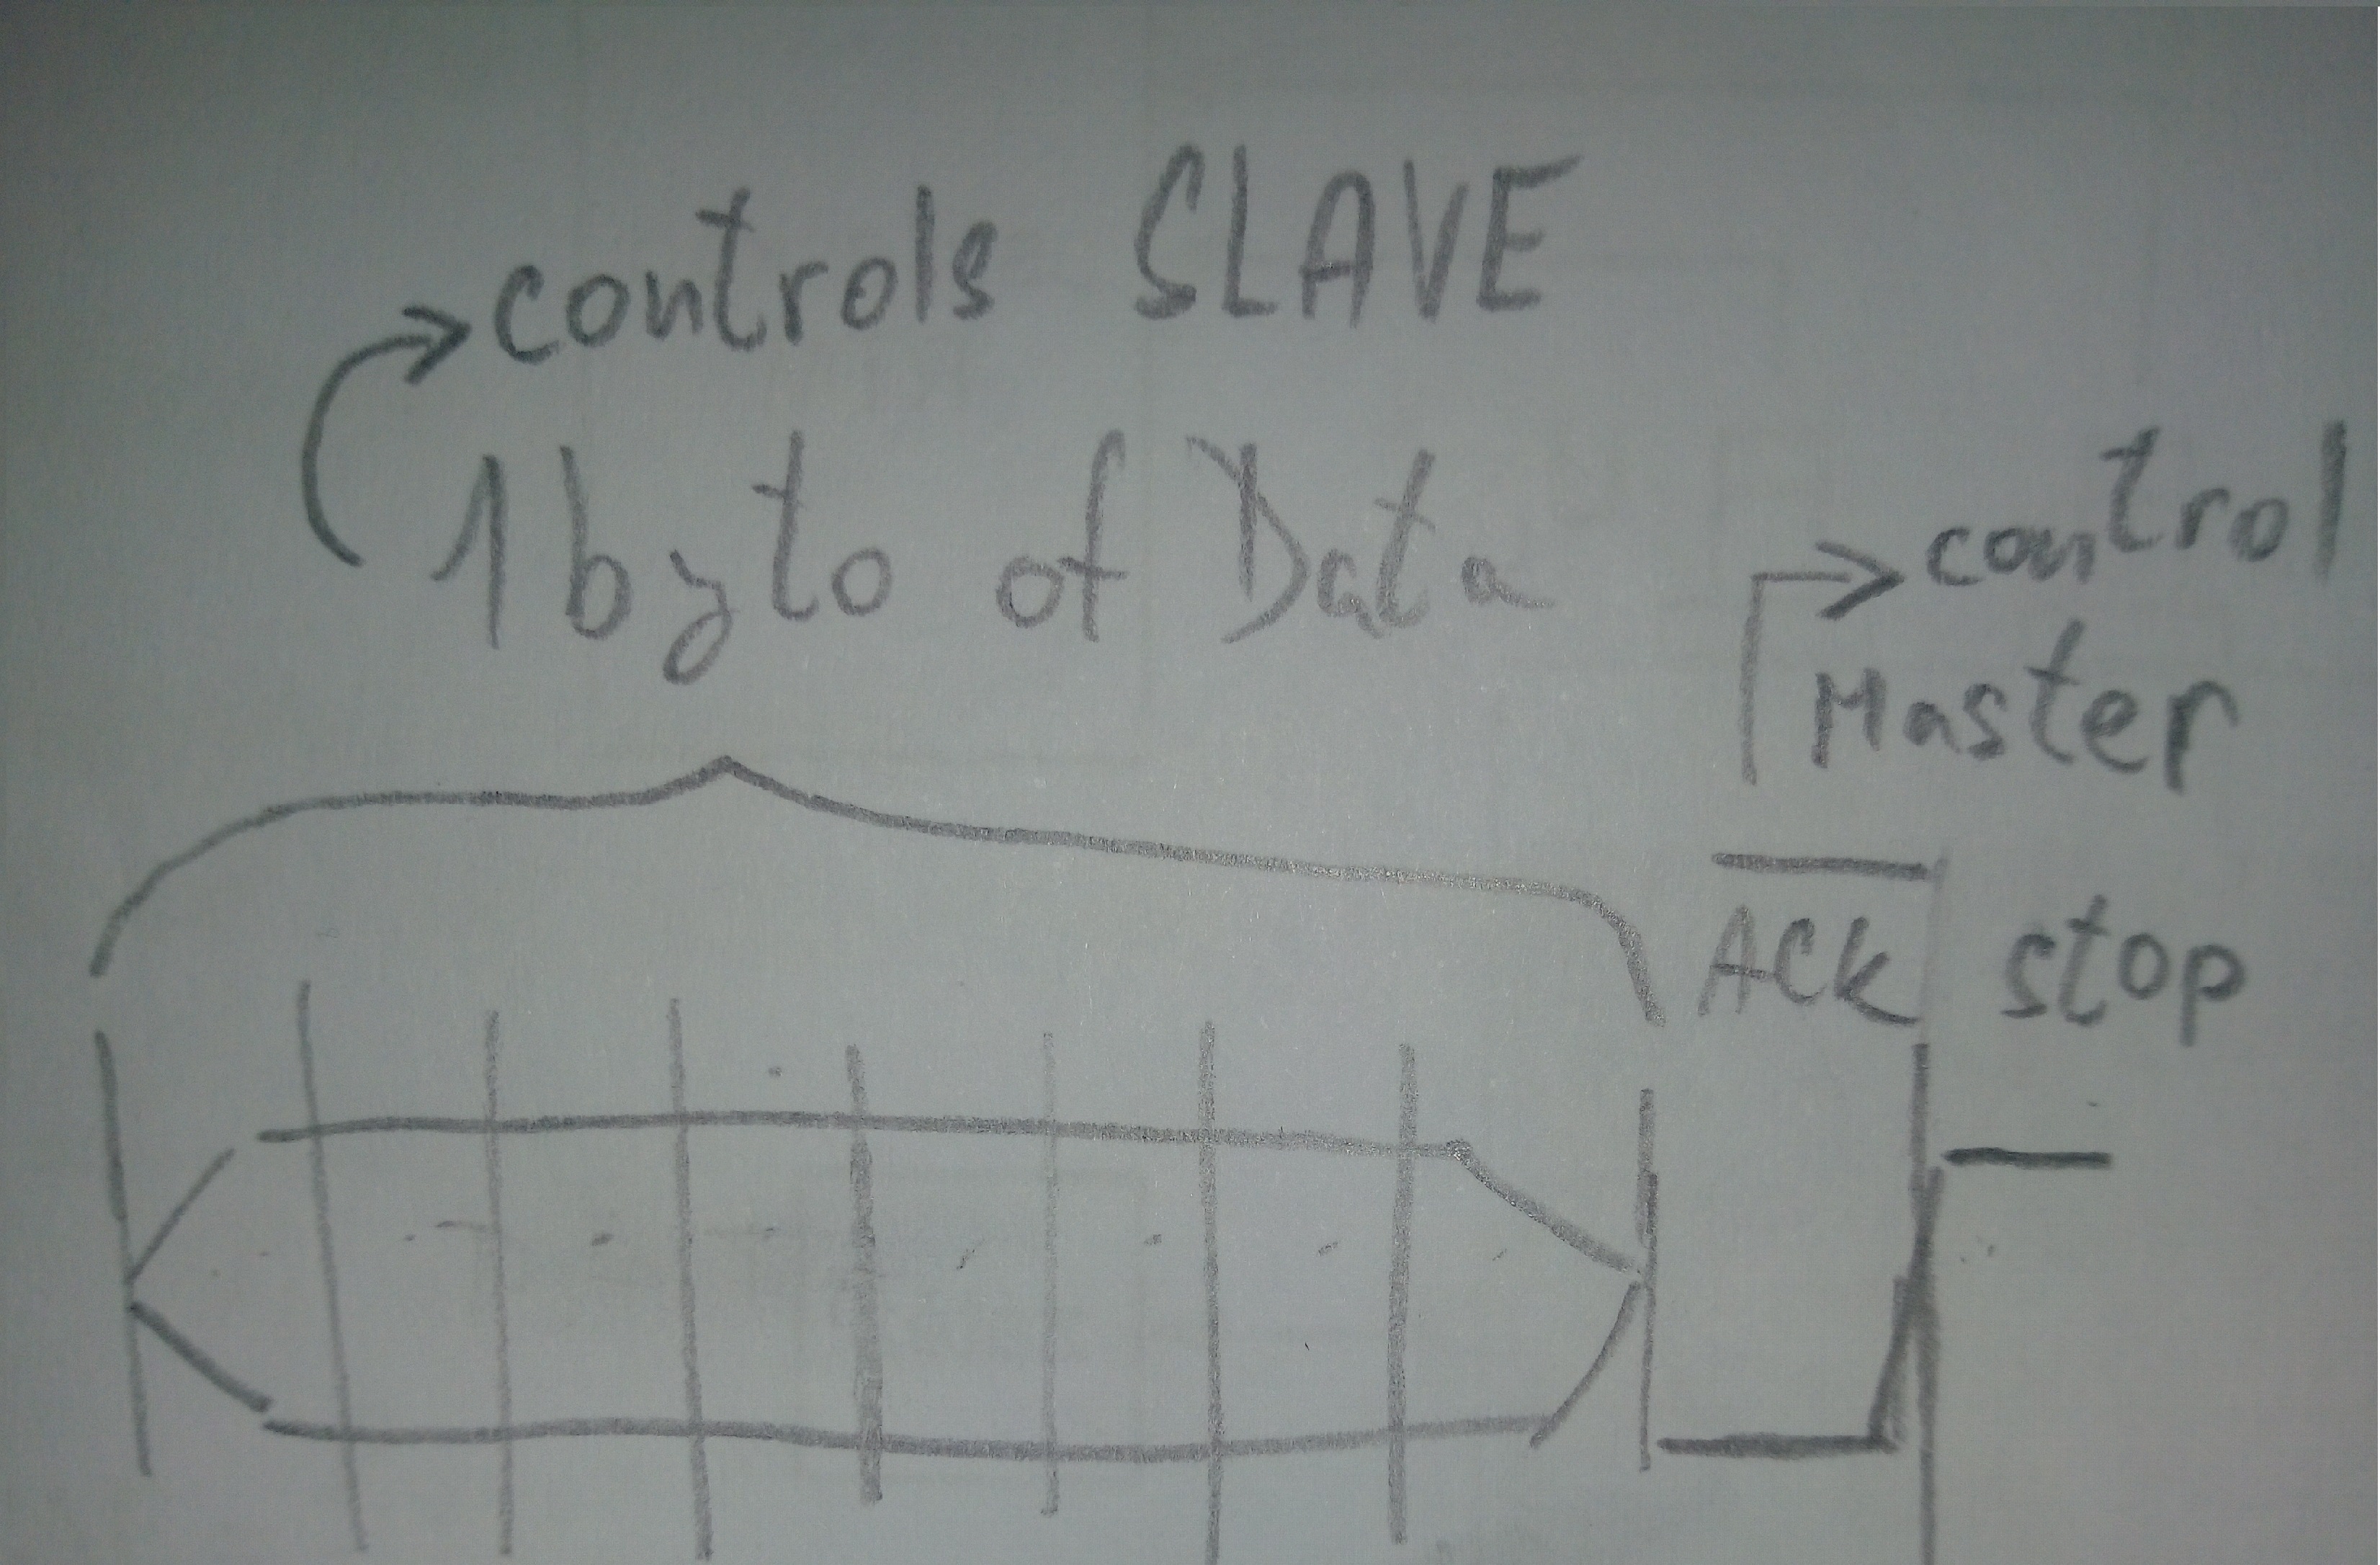 controls SLAVE
1 byto of Data
control
Master
ACK stop